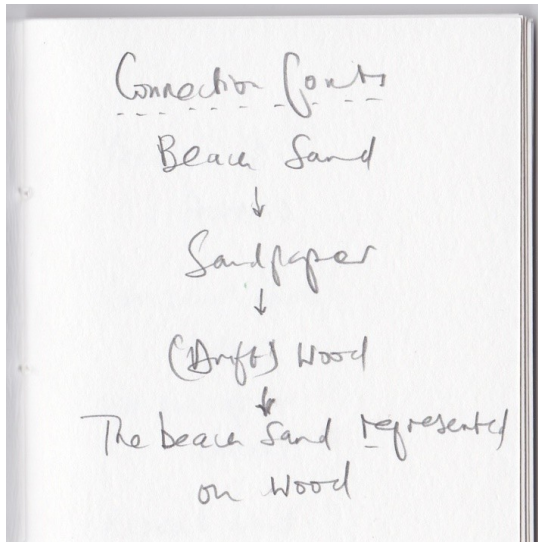 Connection
Beach Sand
Sandpaper
(Drift) Wood
The beach Sand represented
on Wood